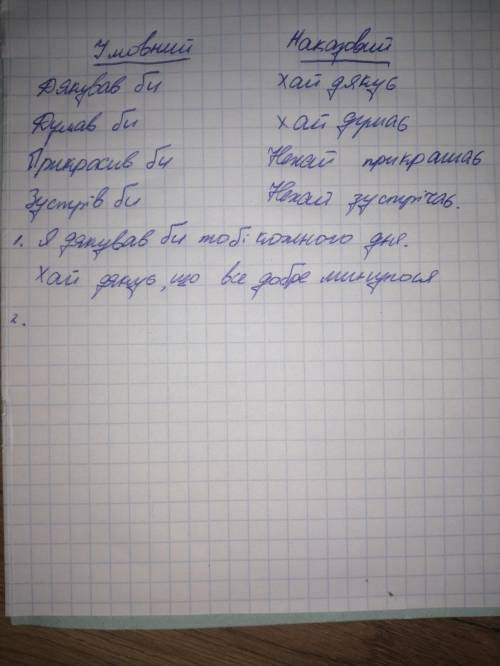 Умовний Наказовий
Дякував би Хай дякує
Думав би Хай думає
Прикрасив би Нехай прикрашає
Зустрів би Нехай зустрічає.
1. Я дякував би тобі кожного дня.
Хай дякує, що все добре минулося
2.